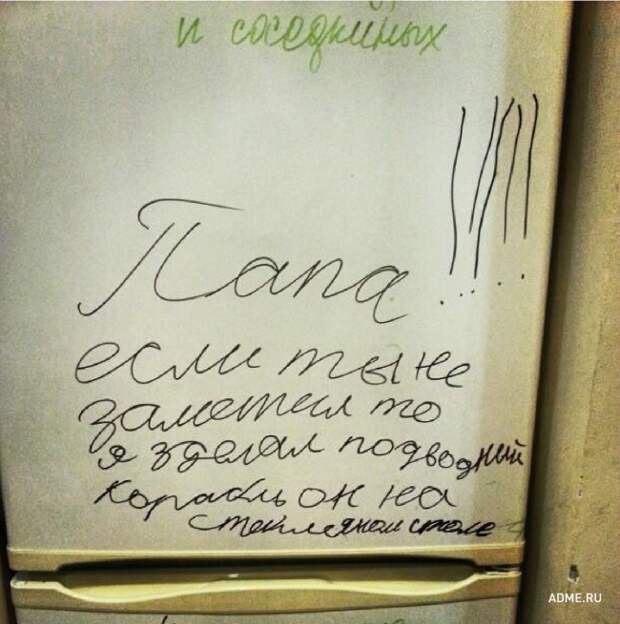 и соседкиных
Папа!!!!!
если ты не
заметил то
я зделал подводный
корабль он на
стекляном столе
ADME.RU